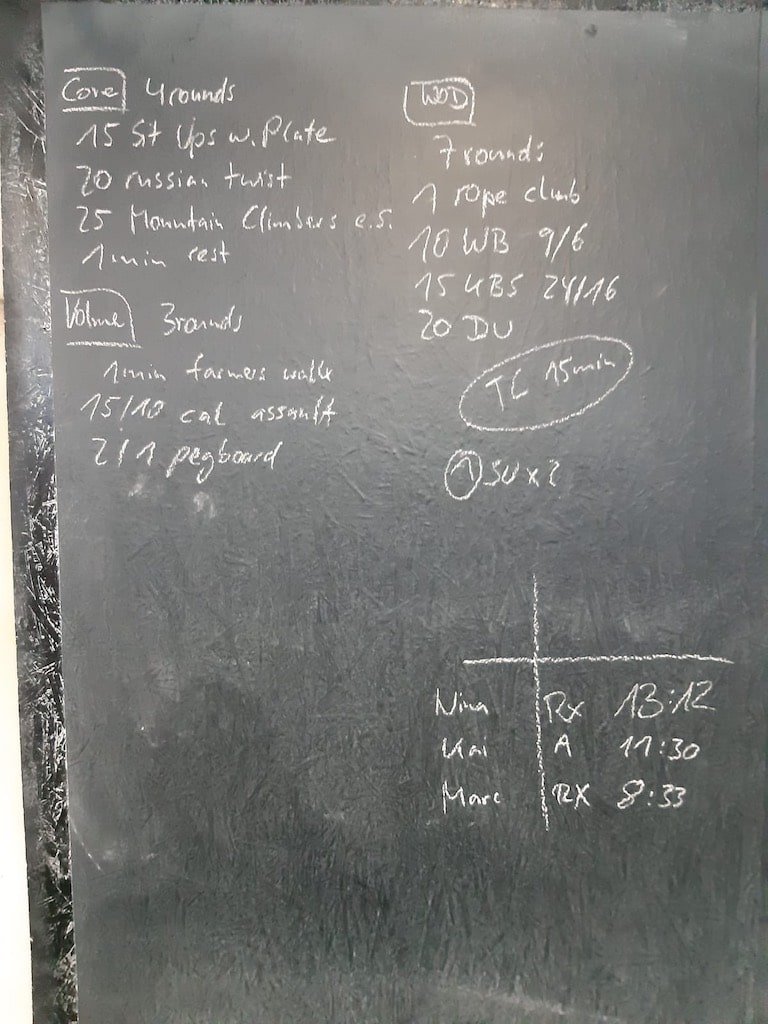 Core 4 rounds
15 Sit Ups w. Plate
20 russian twist
25 Mountain Climbers e.s.
1 min rest
Volume 3 rounds
1 min farmers walk
15/10 cal assault
2/1 pegboard
WOD
7 rounds
1 rope climb
10 WB 9/6
15 KBS 24/16
20 DU
TC 15min
1 SU x 2
Nina Rx 13:12
Kai A 11:30
Marc RX 8:33